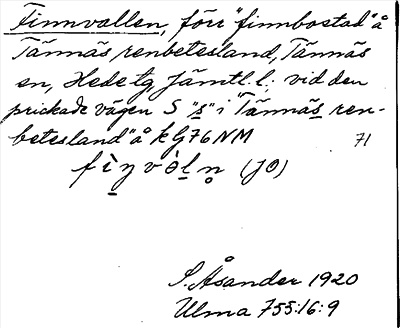 Finnvallen, förr "finnbostad" å
Tännäs renbetesland, Tännäs
sn, Hede tg Jämtl. l.; vid den
prickade vägen S "s" i Tännäs ren-
betesland" å kG76NM 71
fìnvòln (JO)
S. Åsander 1920
Ulma 755:16:9